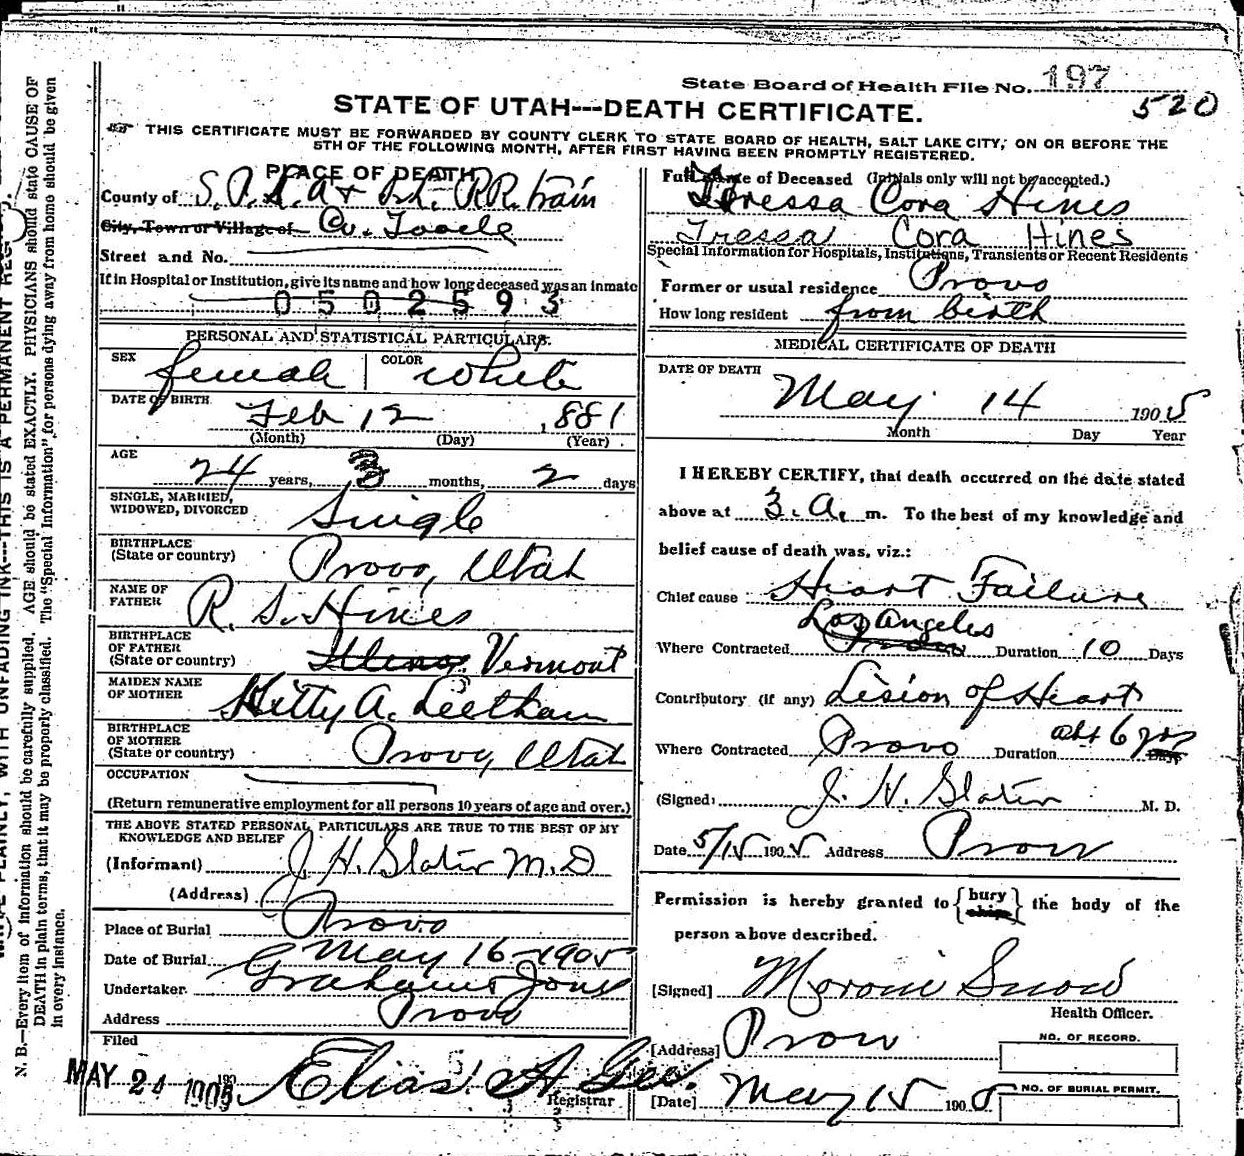 State Board of Health File No. 197
520
STATE OF UTAH---DEATH CERTIFICATE.
THIS CERTIFICATE MUST BE FORWARDED BY COUNTY CLERK TO STATE BOARD OF HEALTH, SALT LAKE CITY, ON OR BEFORE THE
5TH OF THE FOLLOWING MONTH, AFTER FIRST HAVING BEEN PROMPTLY REGISTERED.
PLACE OF DEATH
County of S. P. L. A & R.R. train
City, Town or Village of Co. Tooele
Street and No.
If in Hospital or Institution, give its name and how long deceased was an inmate
0502593
PERSONAL AND STATISTICAL PARTICULARS.
SEX female COLOR White
DATE OF BIRTH Feb 12 1881
(Month) (Day) (Year)
AGE 24 years, 3 months, 2 days
SINGLE, MARRIED,
WIDOWED, DIVORCED Single
BIRTHPLACE
(State or country) Provo, Utah
NAME OF
FATHER R. S. Hines
BIRTHPLACE
OF FATHER
(State or country) Vermont
MAIDEN NAME
OF MOTHER Kitty A. Leetham
BIRTHPLACE
OF MOTHER
(State or country) Provo, Utah
OCCUPATION
(Return remunerative employment for all persons 10 years of age and over.)
THE ABOVE STATED PERSONAL PARTICULARS ARE TRUE TO THE BEST OF MY
KNOWLEDGE AND BELIEF
(Informant) J. H. Slater M.D
(Address)
Place of Burial Provo
Date of Burial May 16-1905
Undertaker Graham Jones
Address Provo
Filed
MAY 24 1905 Elias A Gee.
Registrar
Full Name of Deceased (Initials only will not be accepted.)
Tressa Cora Hines
Tressa Cora Hines
Special Information for Hospitals, Institutions, Transients or Recent Residents
Former or usual residence Provo
How long resident from birth
MEDICAL CERTIFICATE OF DEATH
DATE OF DEATH
May 14 1905
Month Day Year
I HEREBY CERTIFY, that death occurred on the date stated
above at 3. A. m. To the best of my knowledge and
belief cause of death was, viz.:
Chief cause Heart Failure
Los Angeles
Where Contracted Provo Duration 10 Days
Contributory (if any) Lision of Heart
Where Contracted Provo Duration abt 6 yrs Days
(Signed) J. H. Slater M. D.
Date 5/15 1905 Address Provo
Permission is hereby granted to { bury ship } the body of the
person above described.
[Signed] Moroni Snow
Health Officer.
[Address] Provo
NO. OF RECORD.
[Date] May 15 1905
NO. OF BURIAL PERMIT.
N. B.—Every item of information should be carefully supplied. AGE should be stated EXACTLY. PHYSICIANS should state CAUSE OF
DEATH in plain terms, that it may be properly classified. The "Special Information" for persons dying away from home should be given
in every instance.
PLAINLY, WITH UNFADING INK---THIS IS A PERMANENT